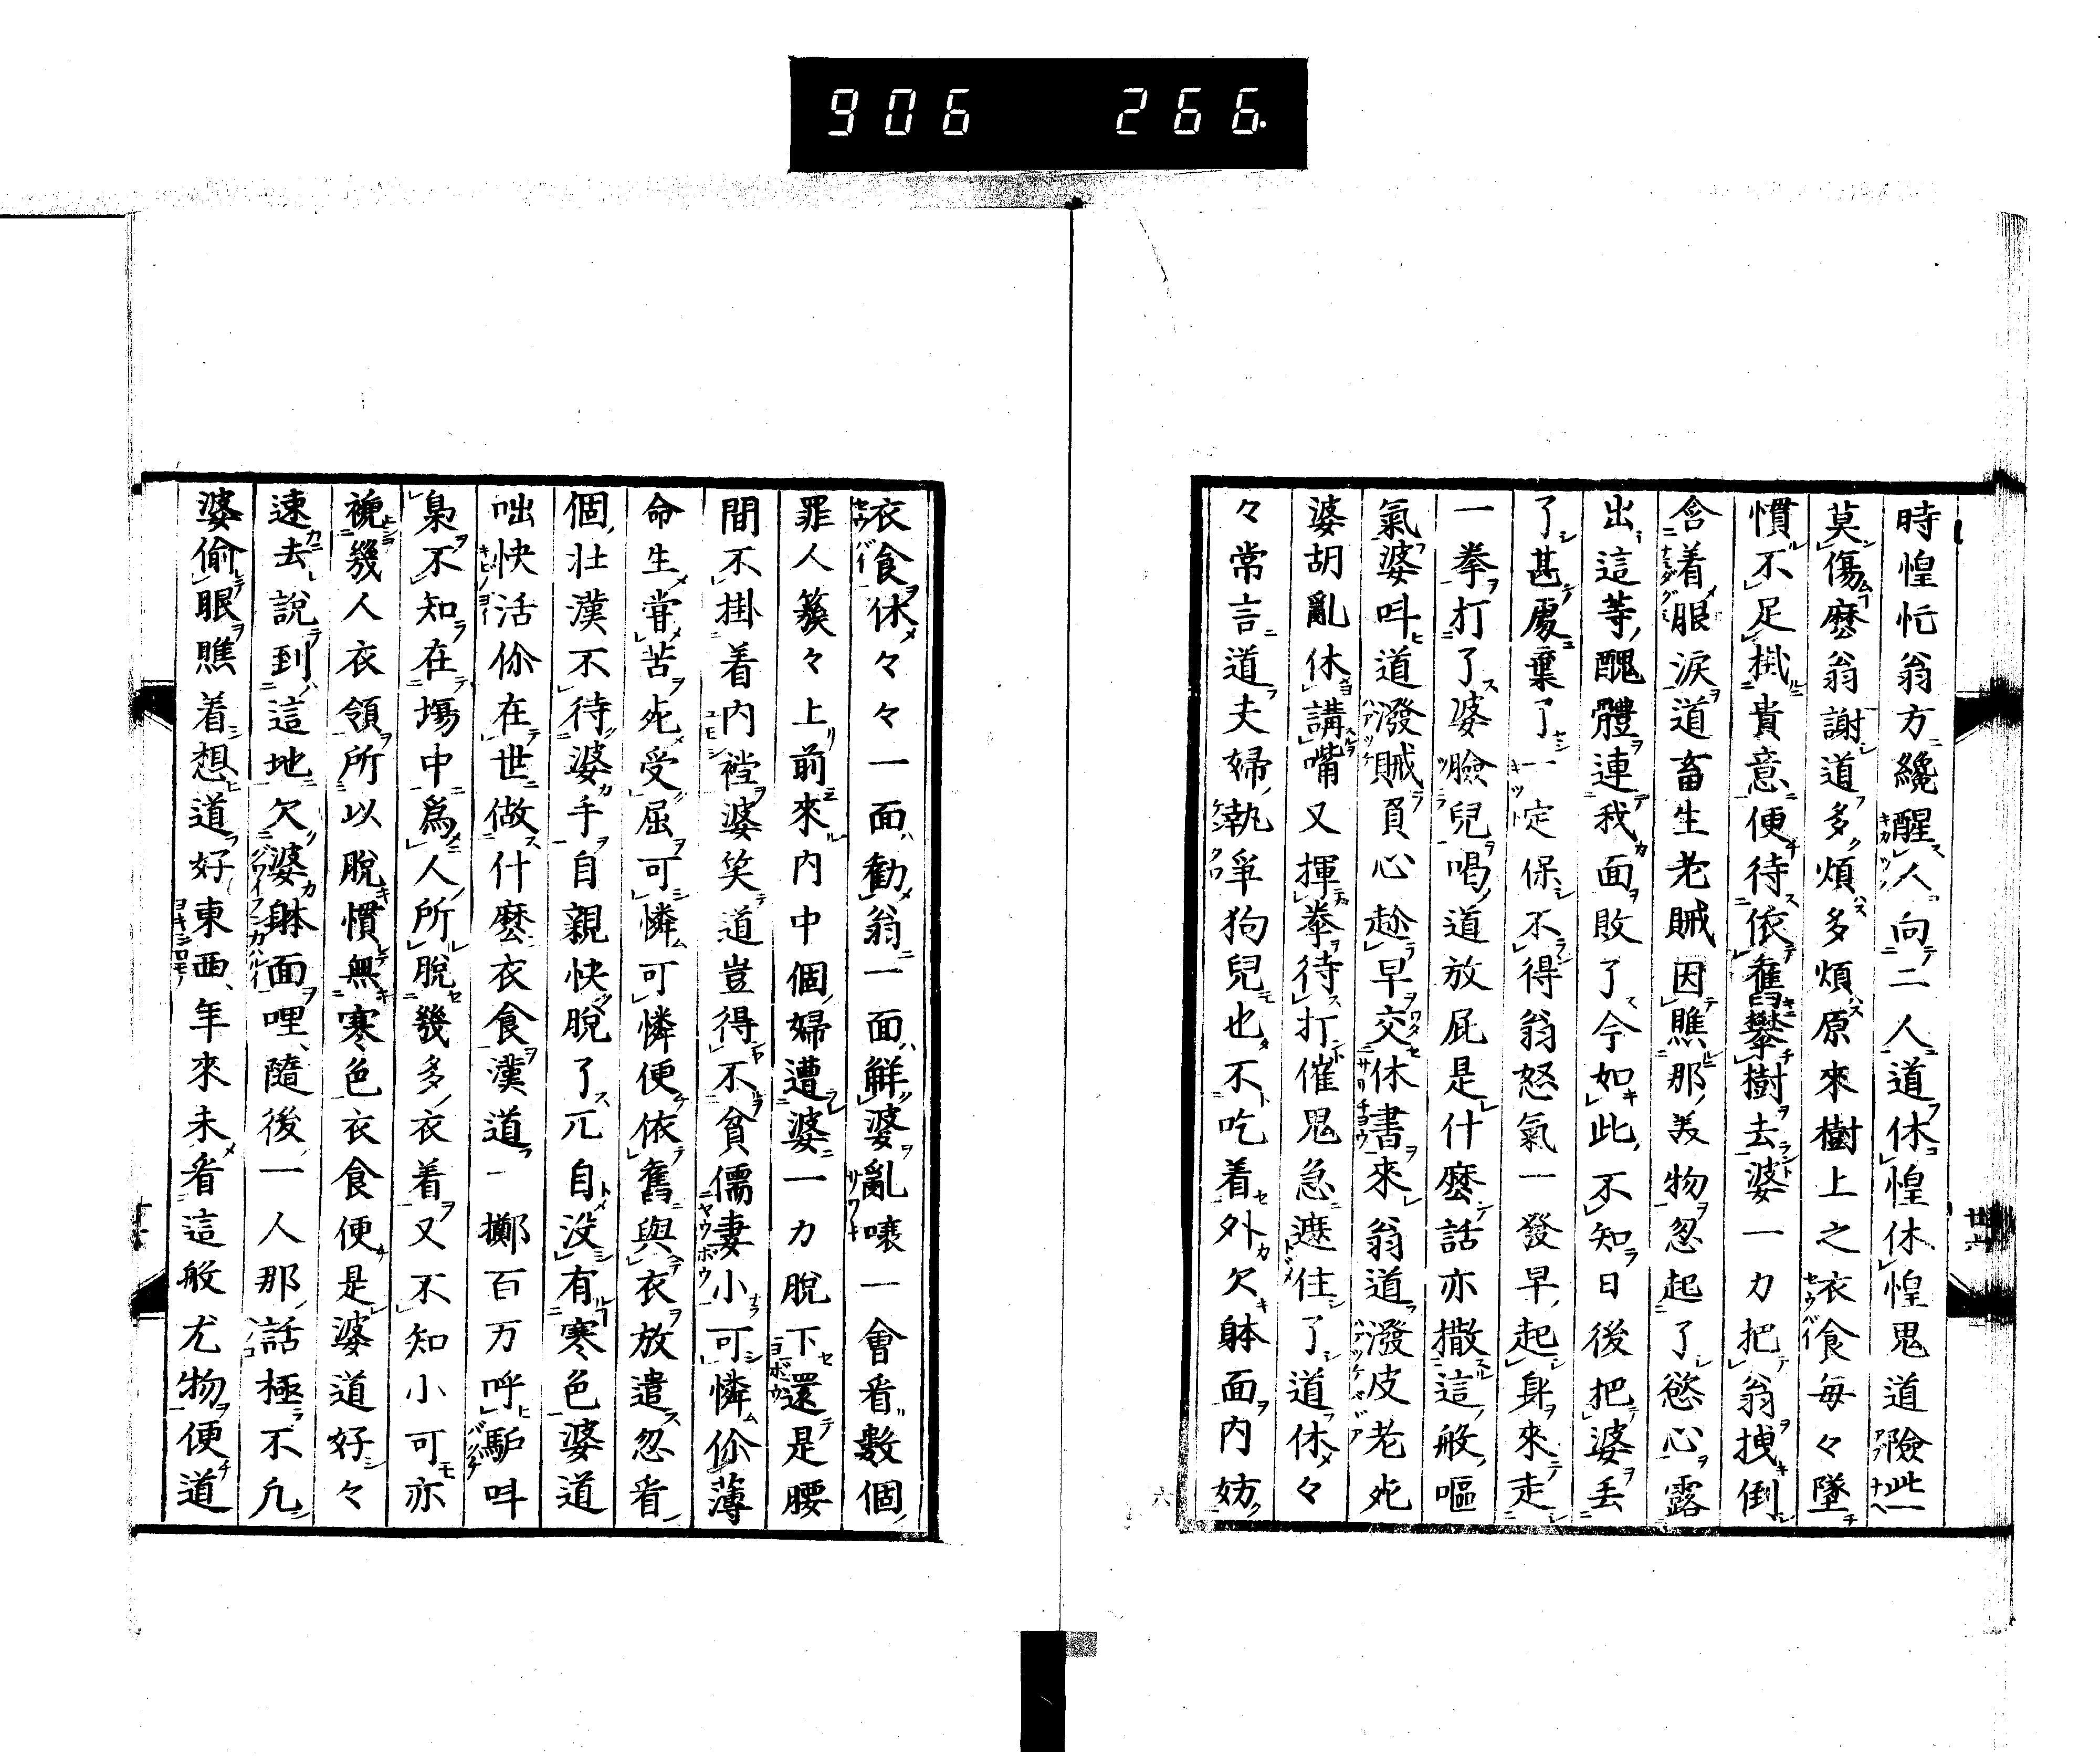 906 266.
時惶忙翁方纔醒人向二人道休惶休惶鬼道險些
莫傷麼翁謝道多煩多煩原來樹上之衣食每々墜
慣不足掛貴意便待依舊攀樹去婆一力把翁拽倒
含着眼淚道畜生老賊因瞧那美物忽起了慾心露
出這等醜體連我面敗了今如此不知日後把婆丟
了甚處棄了一定保不得翁怒氣一發早起身來走
一拳打了婆臉兒喝道放屁是什麼話亦撒這般嘔
氣婆呌道潑賊負心趁早交休書來翁道潑皮老死
婆胡亂休講嘴又揮拳待打催鬼急遮住了道休々
々常言道夫婦執爭狗兒也不吃着外欠躰面內妨
衣食休々々一面勸翁一面解婆亂嚷一會看數個
罪人簇々上前來內中個婦遭婆一力脫下還是腰
間不掛着內襠婆笑道豈得不貧儒妻小可憐你薄
命生甞苦死受屈可憐可憐便依舊與衣放遣忽看
個壯漢不待婆手自親快脫了兀自没有寒色婆道
咄快活你在世做什麼衣食漢道一擲百万呼馿呌
梟不知在場中爲人所脫幾多衣着又不知小可亦
褫幾人衣領所以脫慣無寒色衣食便是婆道好々
速去說到這地欠婆躰面哩隨後一人那話極不凡
婆偷眼瞧着想道好東西年來未看這般尤物便道